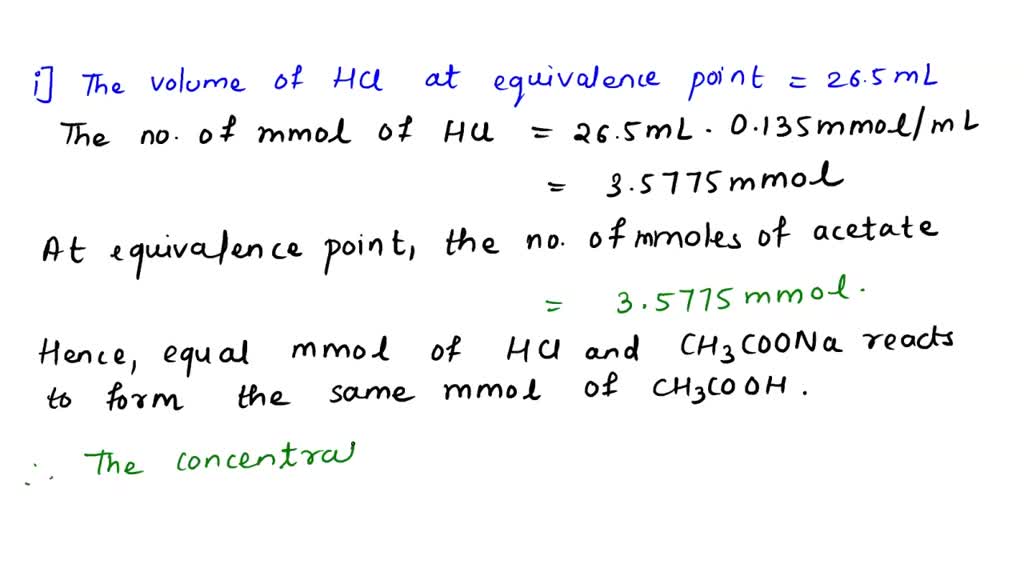 i] The volume of HCl at equivalence point = 26.5mL
The no. of mmol of HCl = 26.5mL · 0.135mmol/mL
= 3.5775mmol
At equivalence point, the no. of mmoles of acetate
= 3.5775mmol.
Hence, equal mmol of HCl and CH3COONa reacts
to form the same mmol of CH3COOH.
∴ The concentra